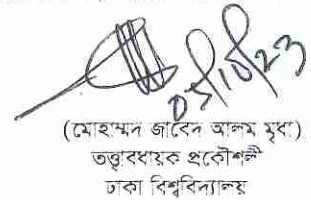 ০৫/১০/২৩
(মোহাম্মদ জাবেদ আলম মৃধা)
তত্ত্বাবধায়ক প্রকৌশলী
ঢাকা বিশ্ববিদ্যালয়